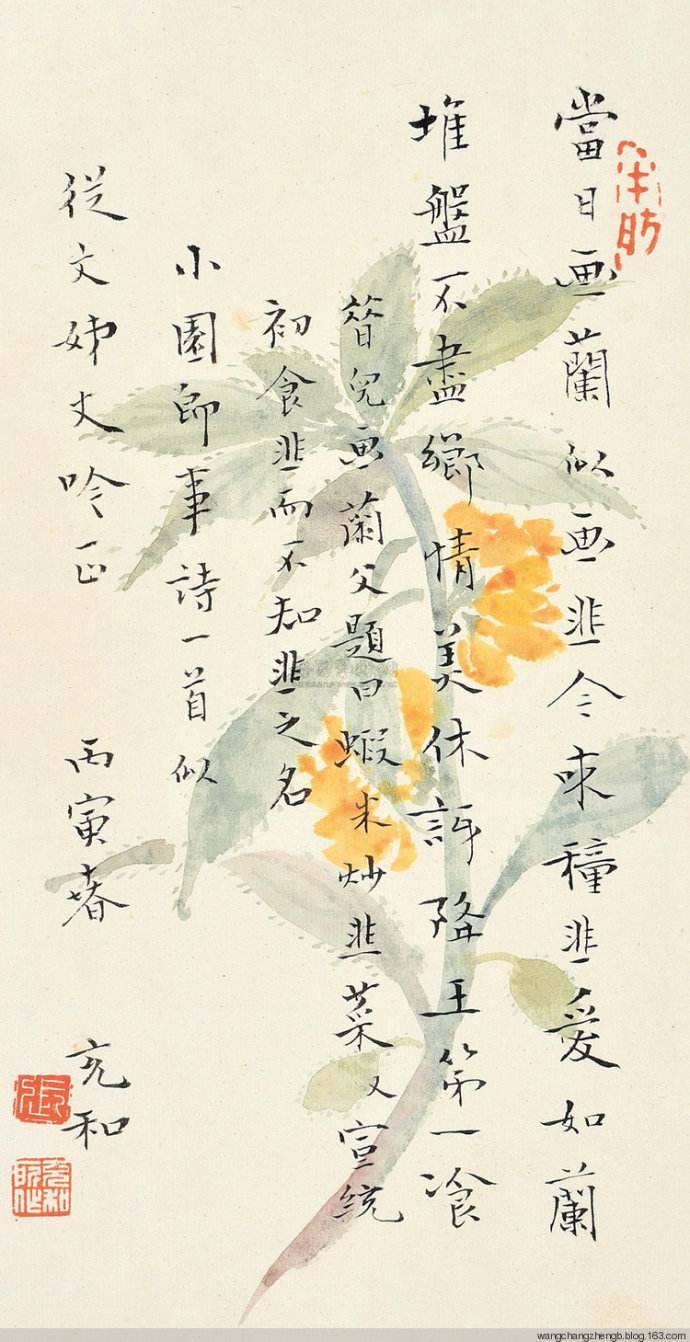 當日画蘭似画韭今來種韭愛如蘭
堆盤不盡鄉情美休訝降王第一飡
昝兒画蘭父題曰蝦米炒韭菜又宣統
初食韭而不知韭之名
小園即事詩一首似
從文姊丈吟正
丙寅春
充和
wangchangzhengb.blog.163.com